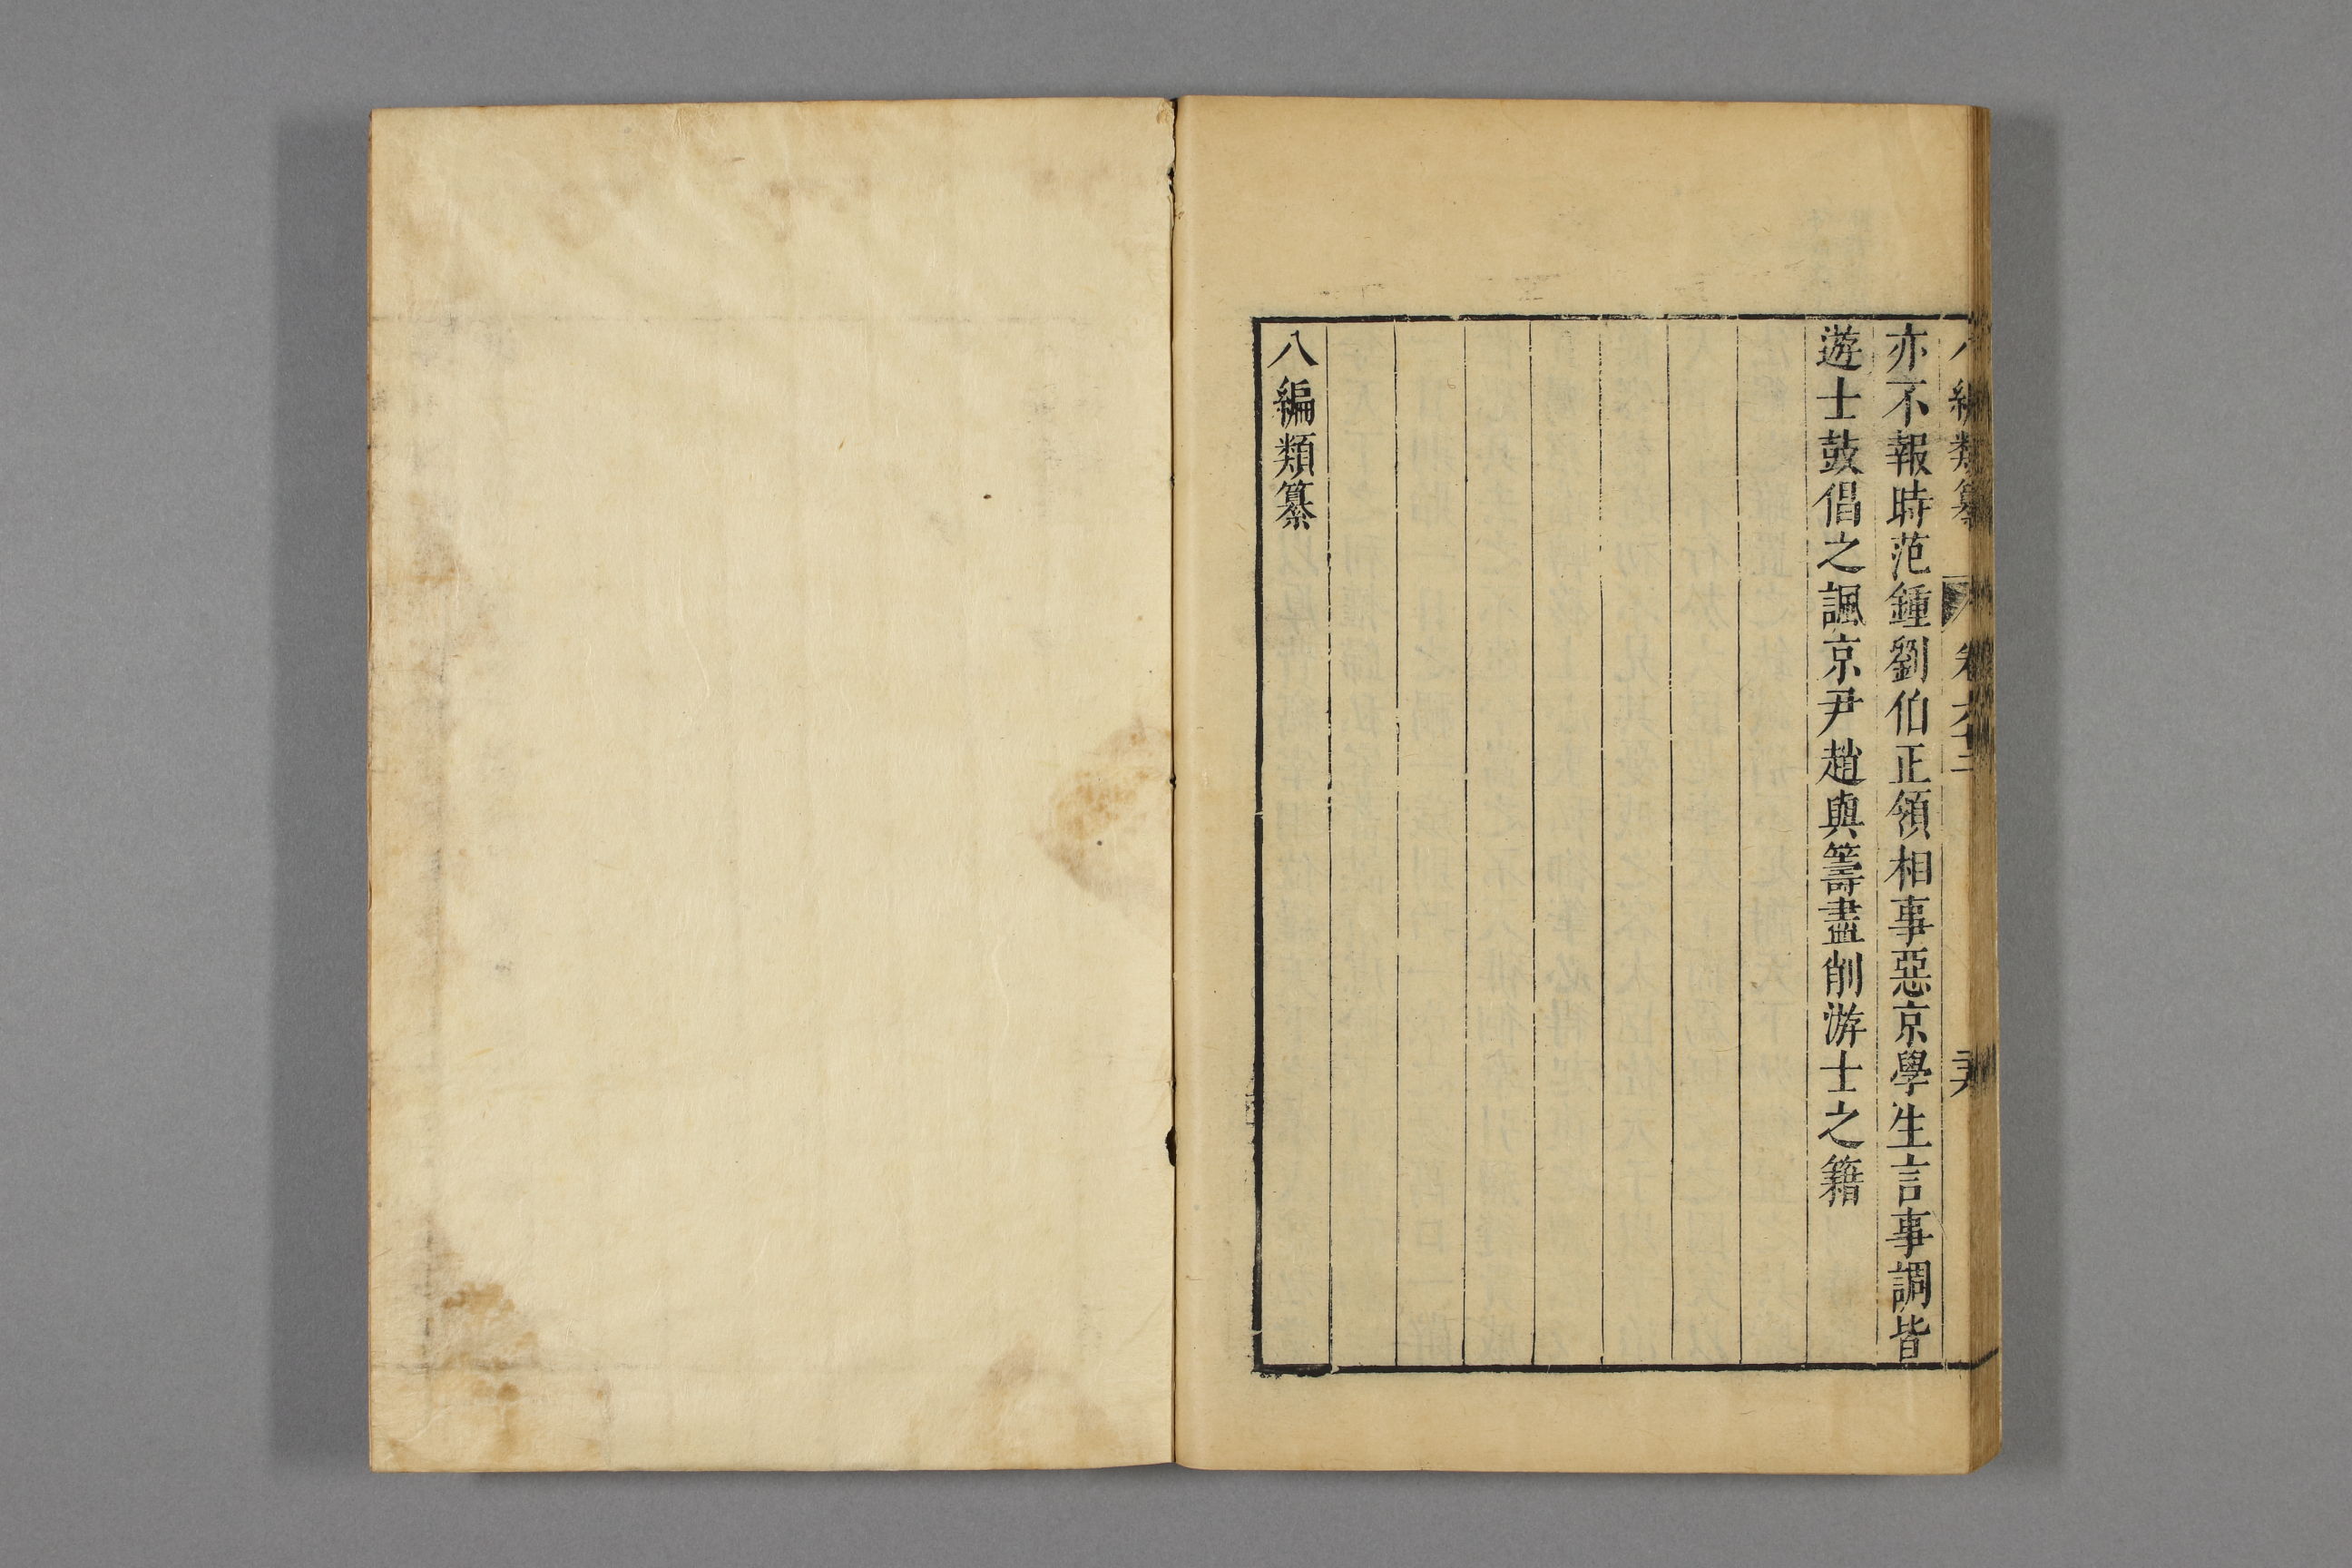 八編類纂 卷六十二
亦不報時范鍾劉伯正領相事惡京學生言事調皆
遊士鼓倡之諷京尹趙與籌盡削游士之籍
八編類纂